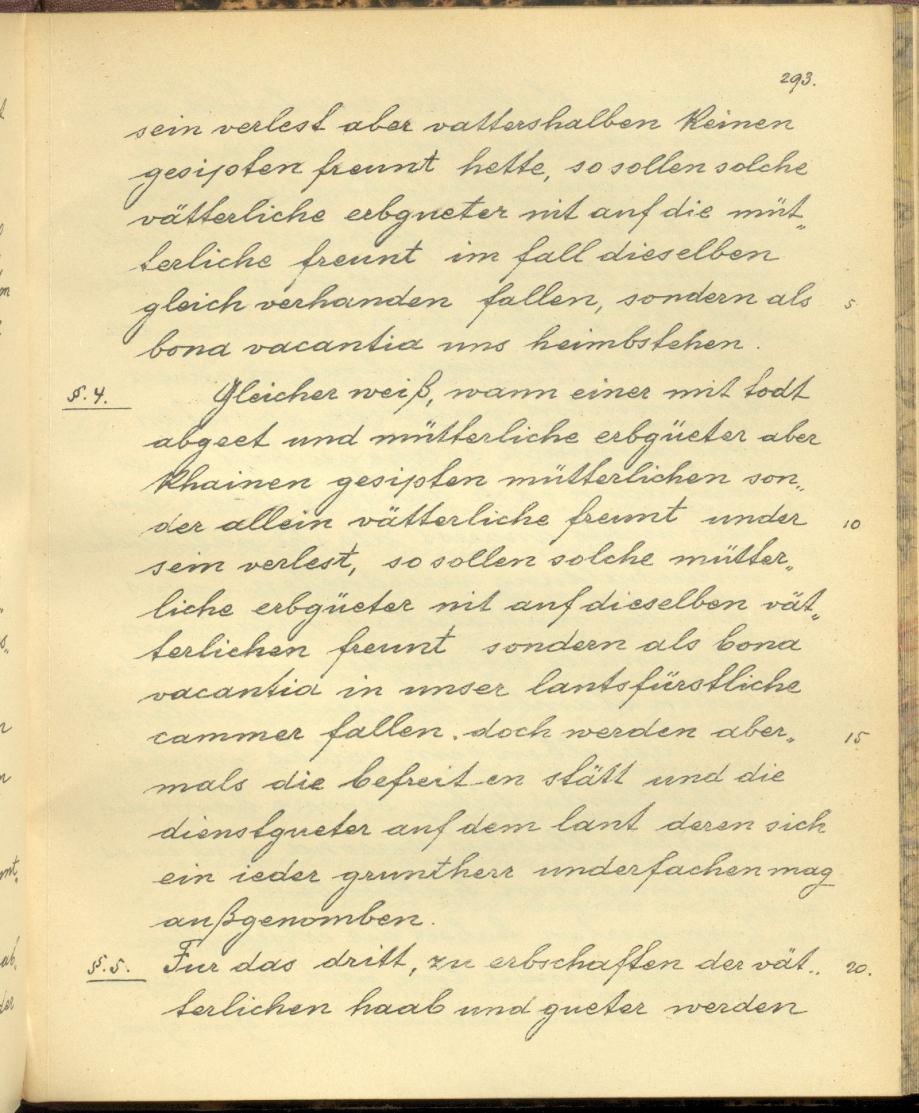 293.
sein verlest aber vattershalben keinen
gesipten freunt hette, so sollen solche
vätterliche erbgueter nit auf die müt„
terliche freunt im fall dieselben
gleich verhanden fallen, sondern als 5
bona vacantia uns heimbstehen.
§. 4. Gleicher weiß, wann einer mit todt
abgeet und mütterliche erbgüeter aber
khainen gesipten mütterlichen son„
der allein vätterliche freunt under 10
sein verlest, so sollen solche mütter„
liche erbgüeter nit auf dieselben vät„
terlichen freunt sondern als bona
vacantia in unser lantsfürstliche
cammer fallen. doch werden aber„ 15
mals die befreiten stätt und die
dienstgueter auf dem lant deren sich
ein ieder gruntherr underfachen mag
außgenomben.
§. 5. Fur das dritt, zu erbschaften der vät„ 20.
terlichen haab und gueter werden